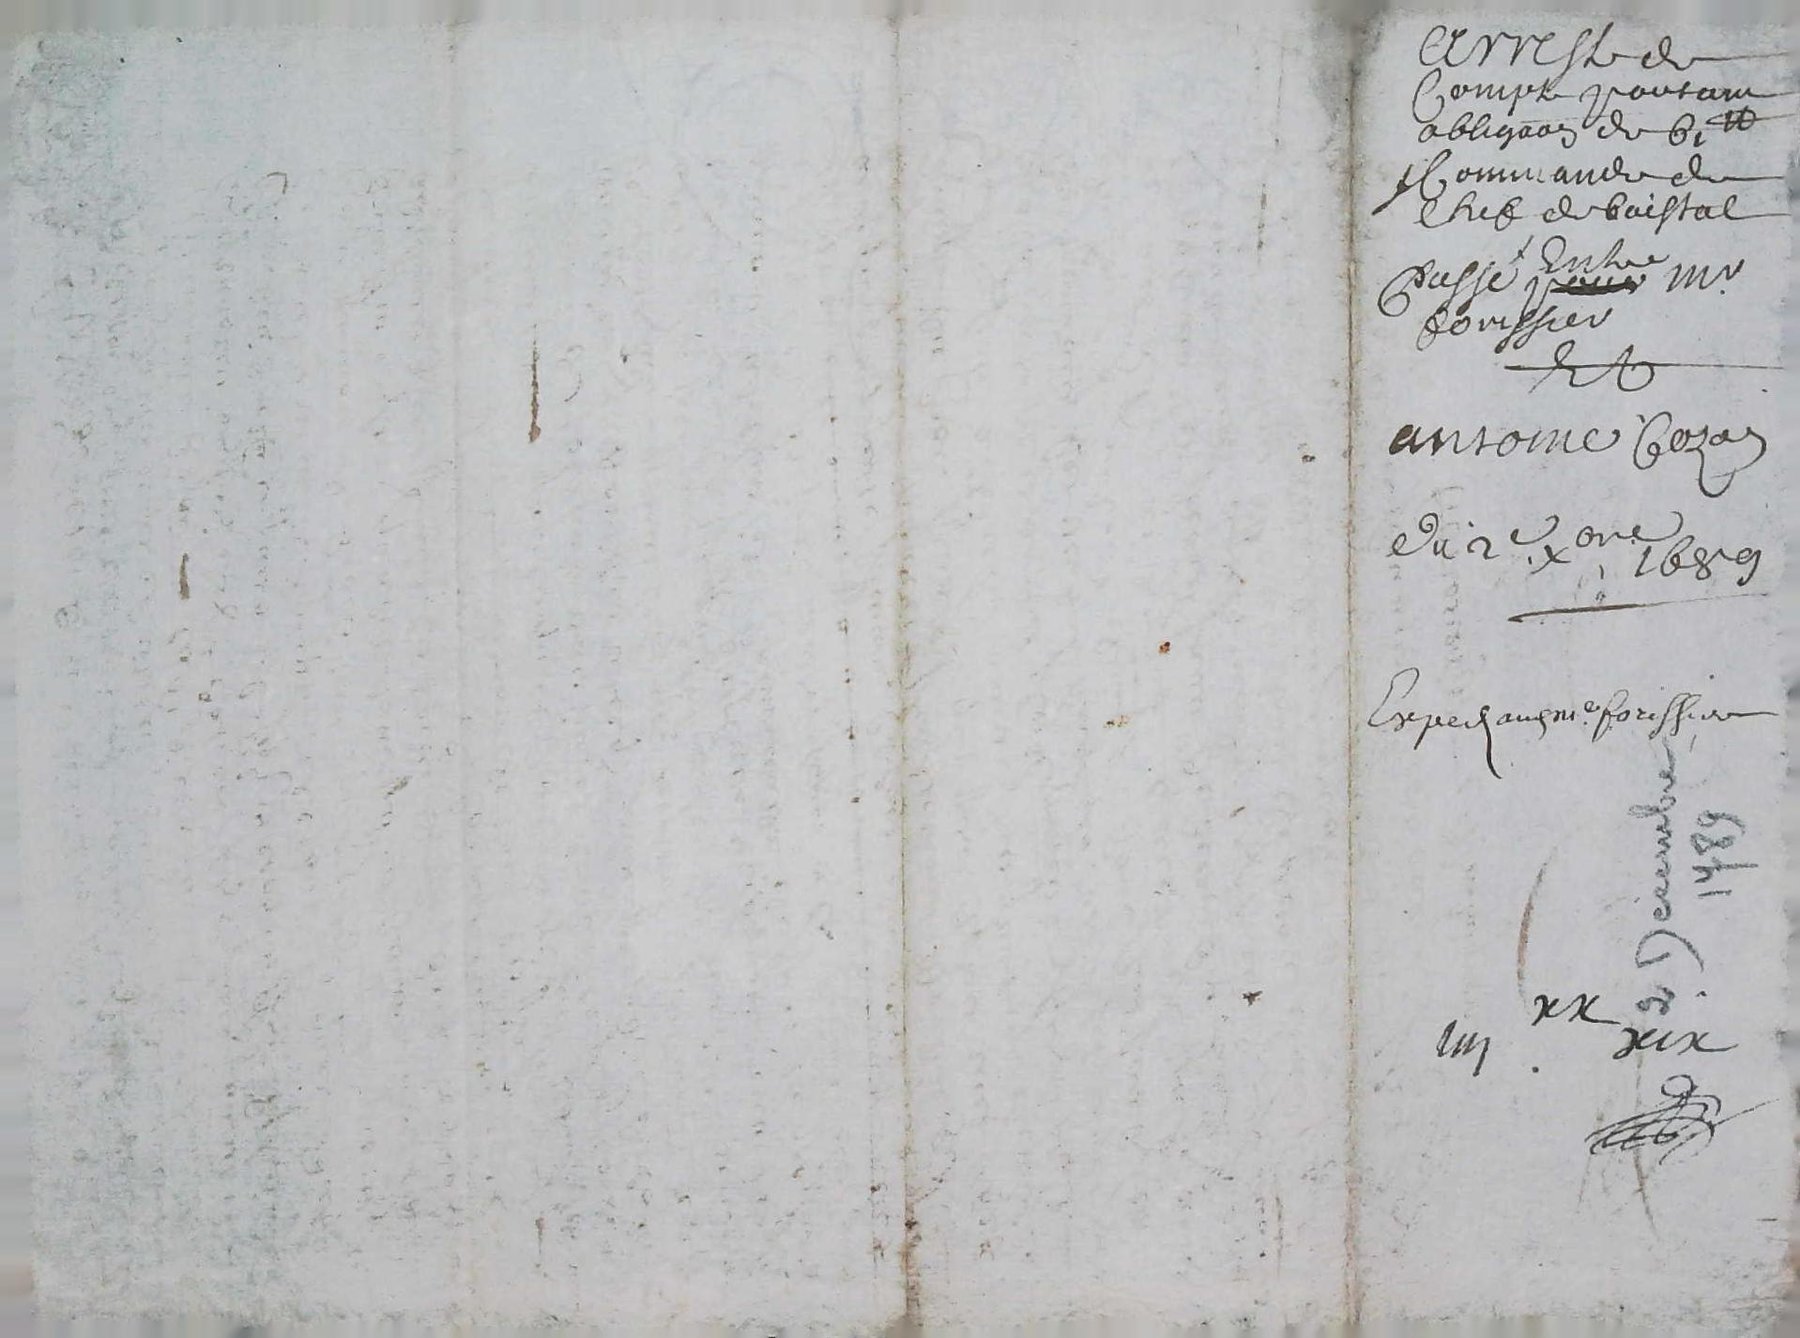 Arreste de
Compte portant
obligaon de 61 ⁱᵗ
& Commande de
Chef de baistal
Passé Entre pour mr
forissier
Et
antoine Cozon
du 2e xbre 1689
Exped aud me forissier
2 Decembre
1789
iiij xx xix